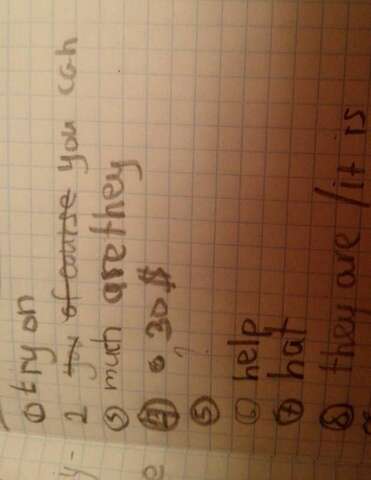 ① try on
y- 2 of course you can
③ much are they
④ 30 $
⑤
⑥ help
⑦ hat
⑧ they are / it is